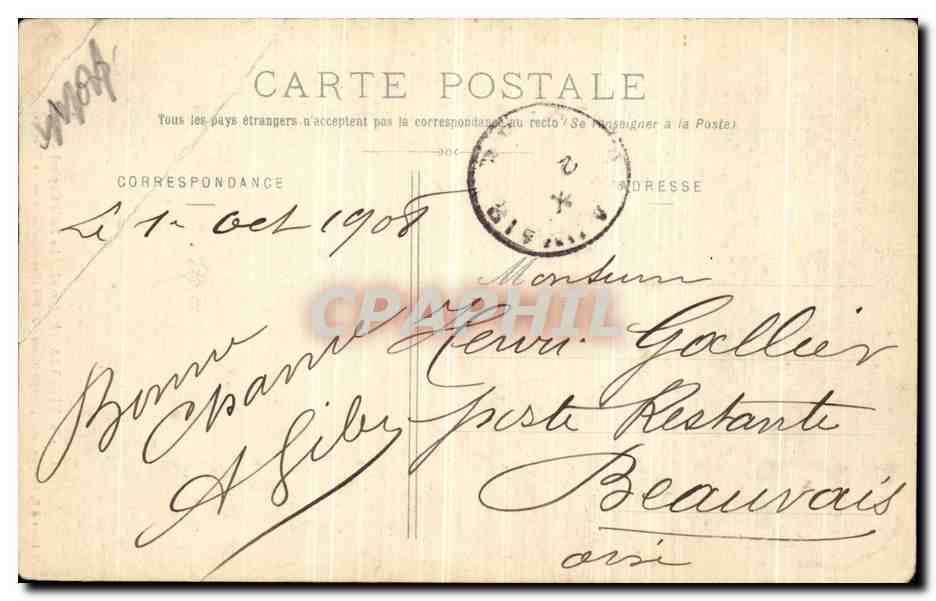 CARTE POSTALE
Tous les pays étrangers n'acceptent pas la correspondance au recto (Se renseigner à la Poste)
CORRESPONDANCE
ADRESSE
Le 1er Oct 1908
Monsieur
Henri Gallier
poste Restante
Beauvais
oise
Bonne
chance
A Giby
CPAPHIL